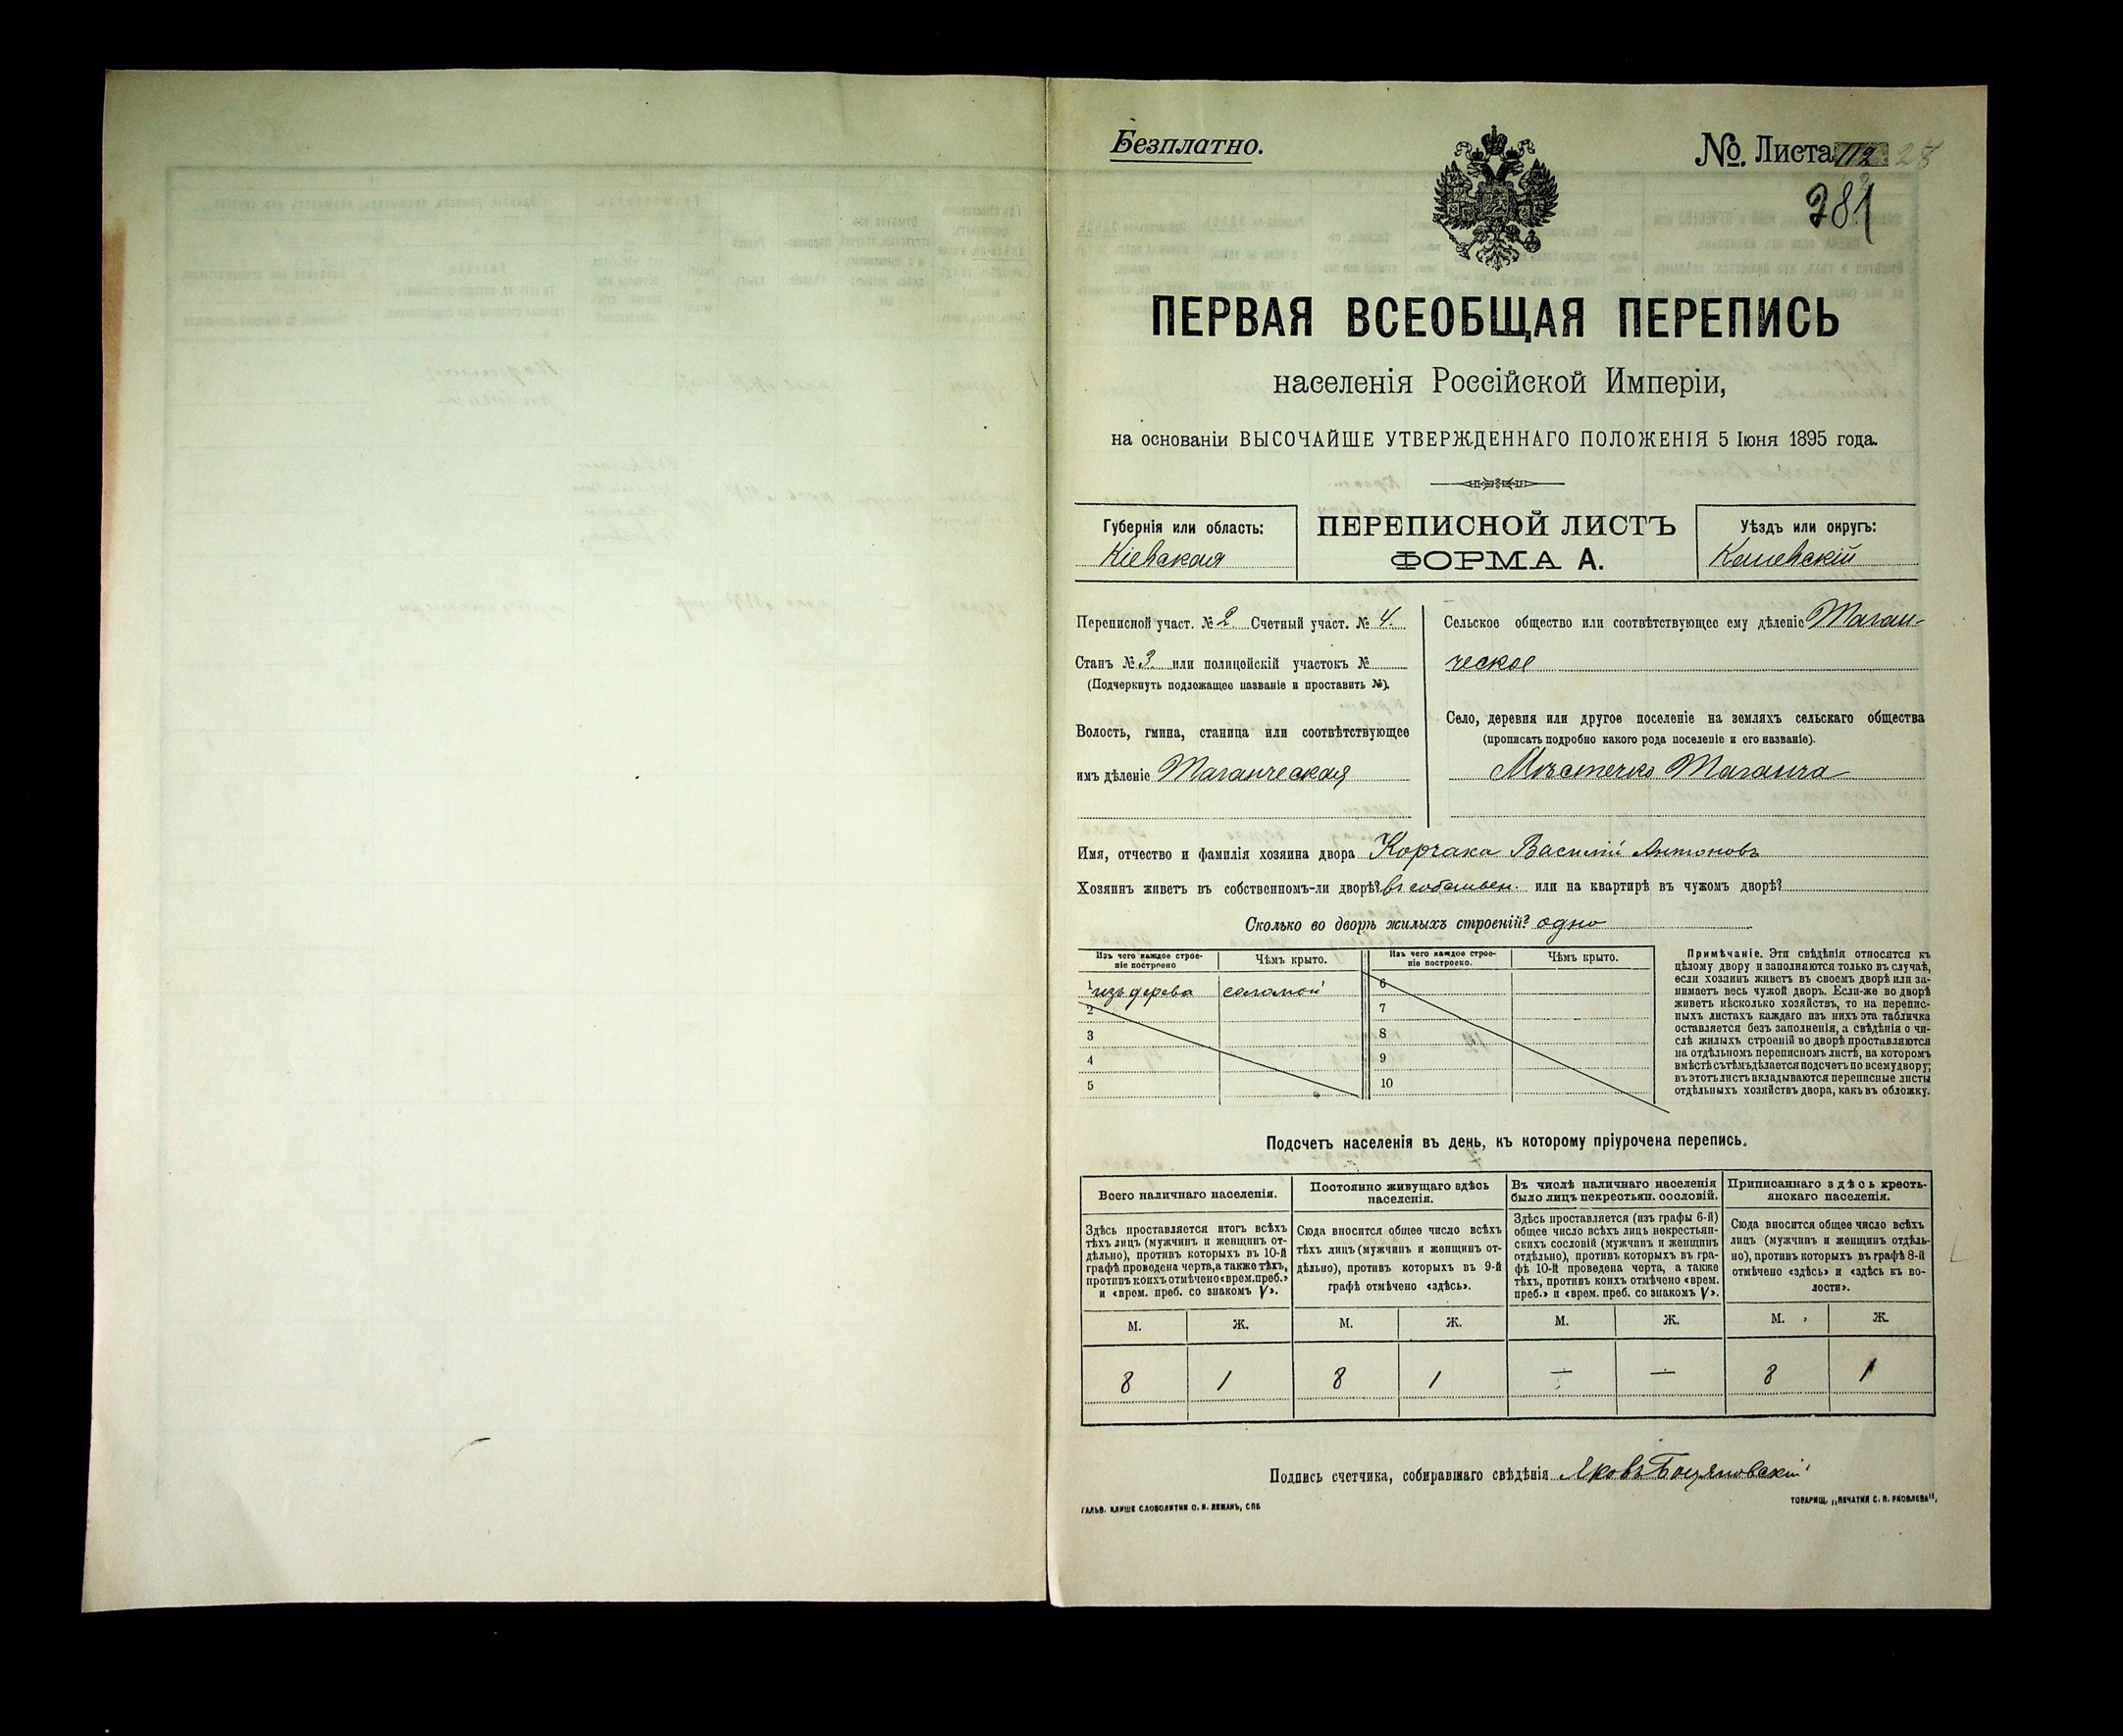 Безплатно.
№. Листа 112 28
381
ПЕРВАЯ ВСЕОБЩАЯ ПЕРЕПИСЬ
населенія Россійской Имперіи,
на основаніи ВЫСОЧАЙШЕ УТВЕРЖДЕННАГО ПОЛОЖЕНІЯ 5 Іюня 1895 года.
Губернія или область:
Кіевская
ПЕРЕПИСНОЙ ЛИСТЪ
ФОРМА А.
Уѣздъ или округъ:
Каневскій
Переписной участ. № 2. Счетный участ. № 4.
Станъ № 3. или полицейскій участокъ №
(Подчеркнуть подлежащее названіе и проставить №).
Волость, гмина, станица или соотвѣтствующее
имъ дѣленіе Таганческая
Сельское общество или соотвѣтствующее ему дѣленіе Таган-
ческое
Село, деревня или другое поселеніе на земляхъ сельскаго общества
(прописать подробно какого рода поселеніе и его названіе).
Мѣстечко Таганча
Имя, отчество и фамилія хозяина двора Корчака Василій Антоновъ
Хозяинъ живетъ въ собственномъ-ли дворѣ? въ собствен. или на квартирѣ въ чужомъ дворѣ?
Сколько во дворѣ жилыхъ строеній? одно
Изъ чего каждое строе-
ніе построено
Чѣмъ крыто.
Изъ чего каждое строе-
ніе построено.
Чѣмъ крыто.
1 изъ дерева соломой 6
2 7
3 8
4 9
5 10
Примѣчаніе. Эти свѣдѣнія относятся къ
цѣлому двору и заполняются только въ случаѣ,
если хозяинъ живетъ въ своемъ дворѣ или за-
нимаетъ весь чужой дворъ. Если-же во дворѣ
живетъ нѣсколько хозяйствъ, то на перепис-
ныхъ листахъ каждаго изъ нихъ эта табличка
оставляется безъ заполненія, а свѣдѣнія о чи-
слѣ жилыхъ строеній во дворѣ проставляются
на отдѣльномъ переписномъ листѣ, на которомъ
вмѣстѣ съ тѣмъ дѣлается подсчетъ по всему двору;
въ этотъ листъ вкладываются переписные листы
отдѣльныхъ хозяйствъ двора, какъ въ обложку.
Подсчетъ населенія въ день, къ которому пріурочена перепись.
Всего наличнаго населенія.
Здѣсь проставляется итогъ всѣхъ
тѣхъ лицъ (мужчинъ и женщинъ от-
дѣльно), противъ которыхъ въ 10-й
графѣ проведена черта, а также тѣхъ,
противъ коихъ отмѣчено «врем. преб.»
и «врем. преб. со знакомъ V».
Постоянно живущаго здѣсь
населенія.
Сюда вносится общее число всѣхъ
тѣхъ лицъ (мужчинъ и женщинъ от-
дѣльно), противъ которыхъ въ 9-й
графѣ отмѣчено «здѣсь».
Въ числѣ наличнаго населенія
было лицъ некрестьян. сословій.
Здѣсь проставляется (изъ графы 6-й)
общее число всѣхъ лицъ некрестьян-
скихъ сословій (мужчинъ и женщинъ
отдѣльно), противъ которыхъ въ гра-
фѣ 10-й проведена черта, а также
тѣхъ, противъ коихъ отмѣчено «врем.
преб.» и «врем. преб. со знакомъ V».
Приписаннаго здѣсь кресть-
янскаго населенія.
Сюда вносится общее число всѣхъ
лицъ (мужчинъ и женщинъ отдѣль-
но), противъ которыхъ въ графѣ 8-й
отмѣчено «здѣсь» и «здѣсь къ во-
лости».
М. Ж. М. Ж. М. Ж. М. Ж.
8 1 8 1 — — 8 1
Подпись счетчика, собиравшаго свѣдѣнія Яковъ Боцяновскій
ГАЛЬВ. КЛИШЕ СЛОВОЛИТНИ О. И. ЛЕМАНЪ, СПБ
ТОВАРИЩ. „ПЕЧАТНЯ С. П. ЯКОВЛЕВА“,